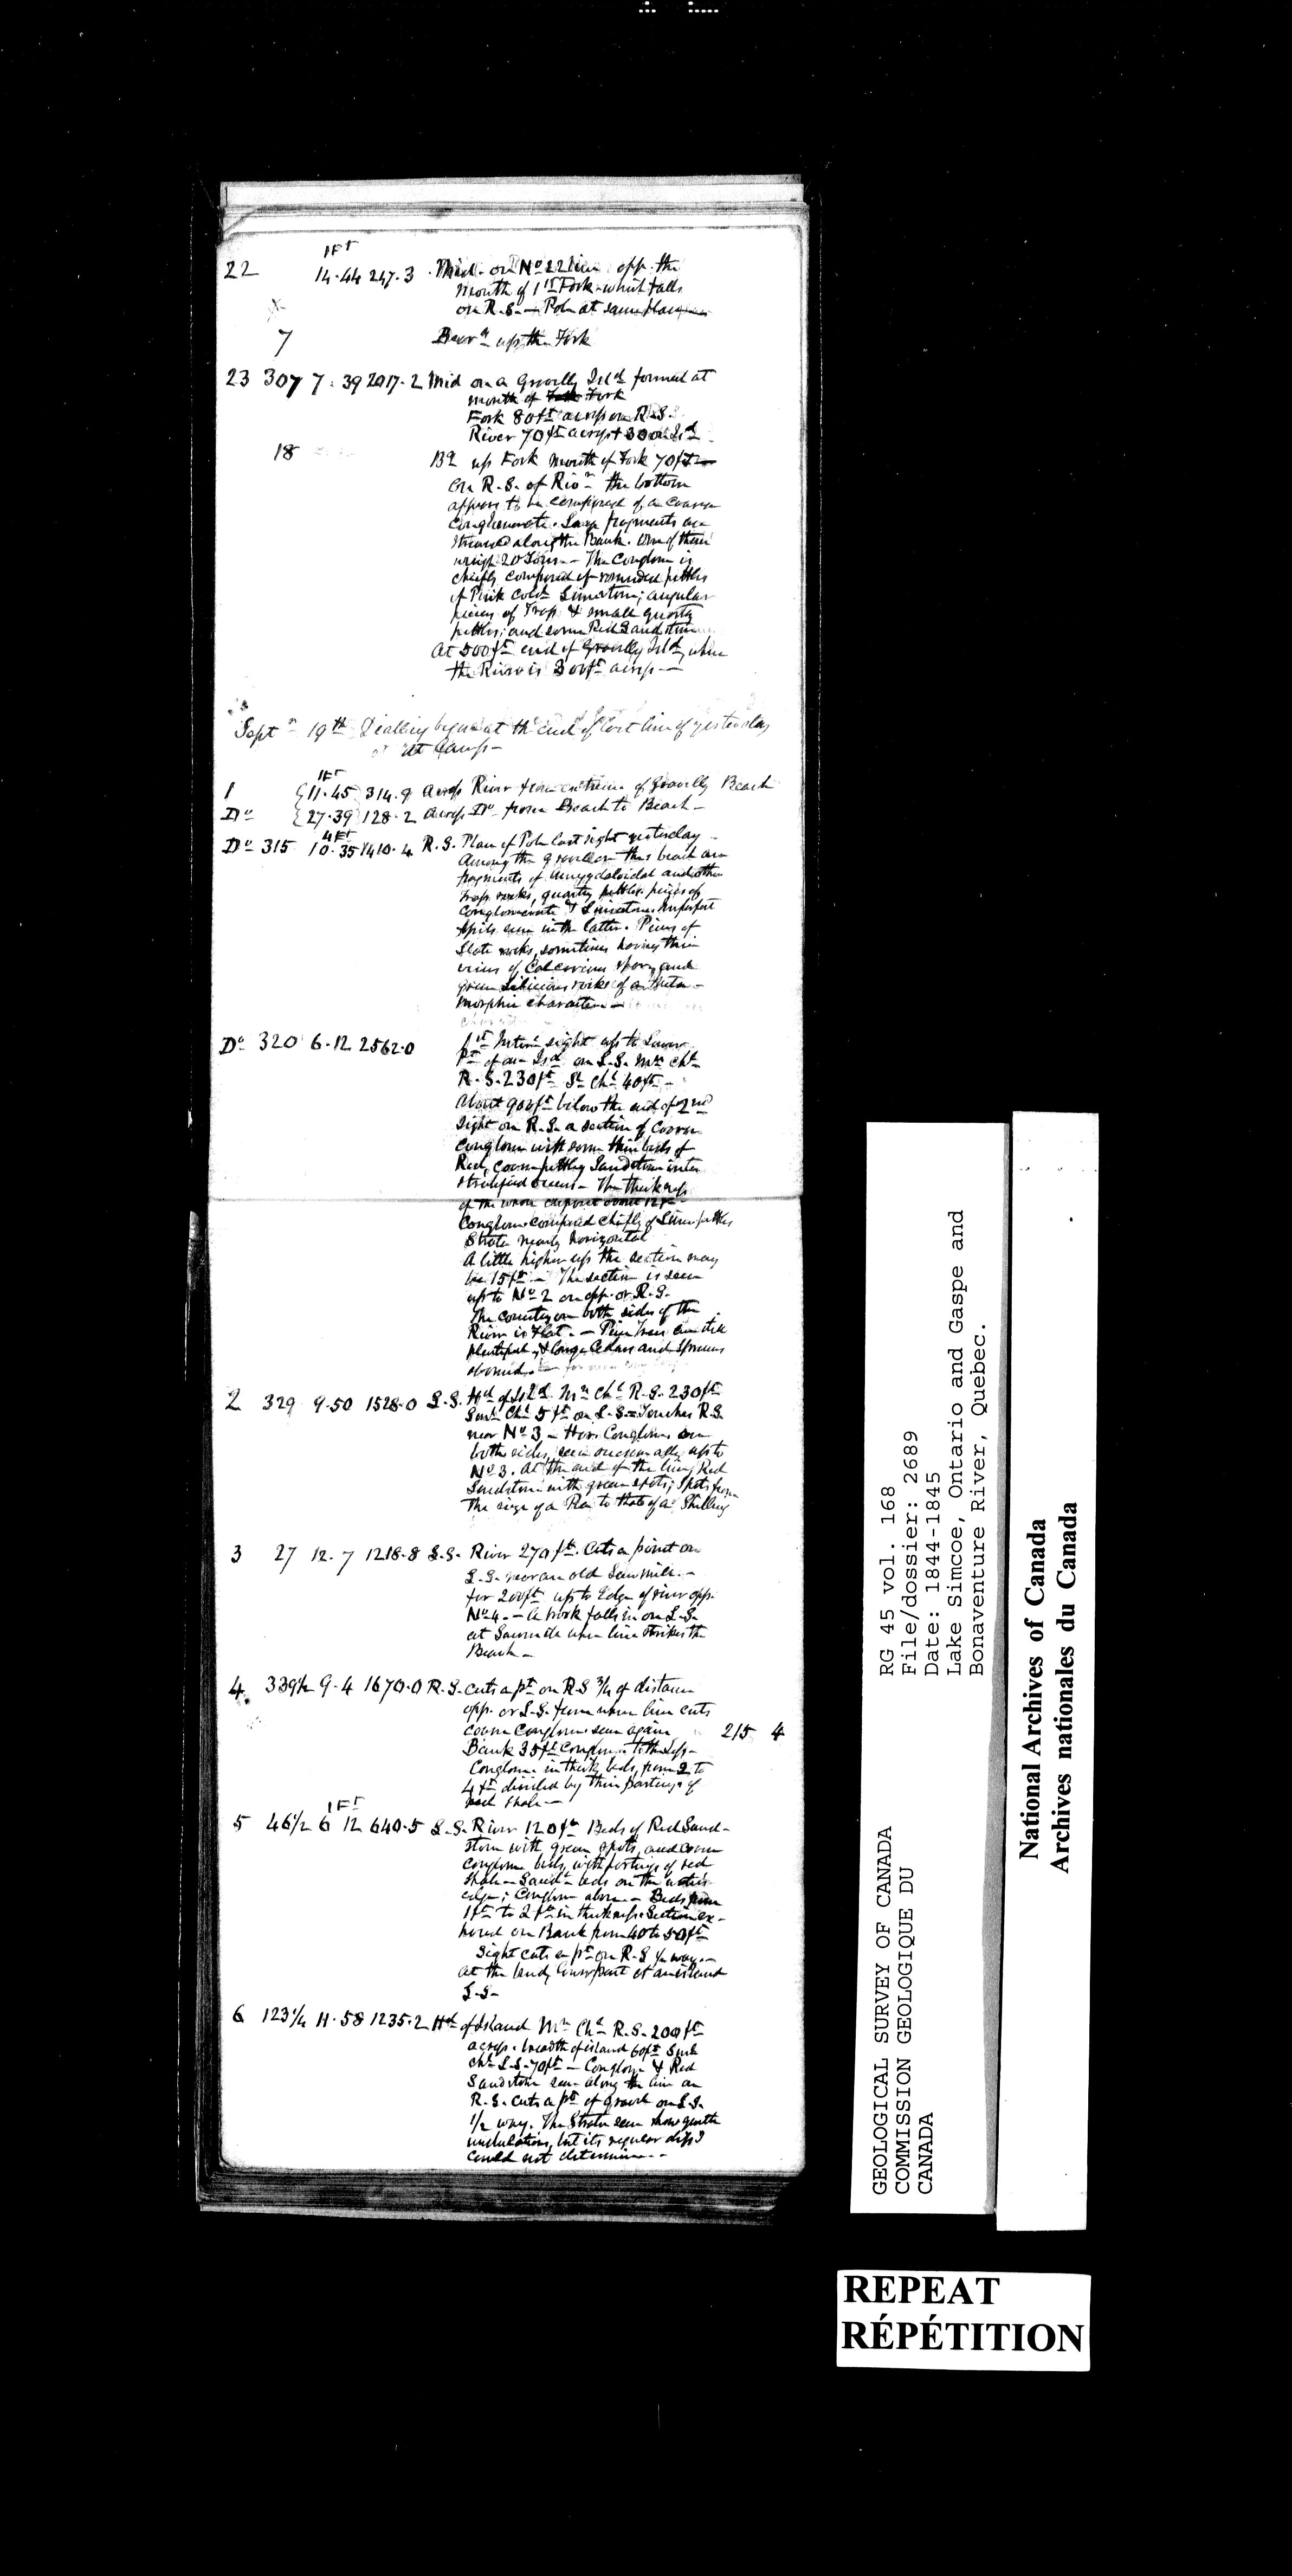 1 FT
22 14.44 247.3 Mid. on No 22 line opp. the
mouth of 1st Fork which falls
on R.S. — Pole at same place
7 Bear'g up the Fork
23 307 7.39 2017.2 Mid on a Gravelly Isld formed at
mouth of Fork
Fork 80 ft across on R.S.
River 70 ft across + 300
18 Bg up Fork mouth of Fork 70 ft
on R.S. of Rivr the bottom
appears to be composed of a coarse
conglomerate. Large fragments are
strewed along the Bank. One of them
weighs 20 Tons. — The Conglome is
chiefly composed of rounded pebbles
of Pink cold Limestone; angular
pieces of Trap & small quartz
pebbles; and some Red Sandstone
At 500 ft end of Gravelly Isld, where
the River is 300 ft across —
Sept 19th Dialling began at the end of last line of yesterday
at Camp —
1 FT
1 11.45 314.9 Across River from extreme of Gravelly Beach
Do 27.39 128.2 Across Do from Beach to Beach —
4 FT
Do 315 10.35 1410.4 R.S. Place of Pole last sight yesterday —
Among the gravel on this beach are
fragments of Amygdaloidal and other
Trap rocks, quartz pebbles pieces of
Conglomerate & Limestone. Imperfect
fossils seen in the latter. Pieces of
Slate rocks, sometimes having thin
veins of Calcareous spar, and
green silicious rocks of a Meta-
morphic character —
Do 320 6.12 2562.0 1st Interm sight up to Lower
Pt of an Isd on L.S. Mn Chl
R.S. 230 ft Sl Chl 40 ft —
About 900 ft below the end of 2nd
sight on R.S. a section of Coarse
Conglome with some thin beds of
Red, coarse pebbly Sandstone inter
stratified occurs — The thickness
of the whole deposit about 12 ft —
Conglome composed chiefly of Lime pebbles
Strata nearly horizontal
A little higher up the section may
be 15 ft — The section is seen
up to No 2 on opp. or R.S.
The country on both sides of the
River is flat. — Pine Trees are still
plentiful, & large Cedars and Spruces
abound.
2 329 9.50 1528.0 L.S. Hd of Isld Mn Chl R.S. 230 ft
Sml Chl 5 ft on L.S. = Touches R.S.
near No 3 — Hor. Conglome on
both sides, seen occasionally up to
No 3. At the end of the line, Red
Sandstone with green spots; spots from
the size of a Pea to that of a Shilling
3 27 12.7 1218.8 L.S. River 270 ft. Cuts a point on
L.S. near an old Sawmill. —
for 200 ft up to Edge of river opp.
No 4. — A brook falls in on L.S.
at Sawmill when line strikes the
Beach —
4 339 1/2 9.4 1670.0 R.S. cuts a pt on R.S 3/4 of distance
opp. or L.S. from when line cuts
coarse Conglome seen again 215 4
Bank 35 ft Conglome to the top —
Conglome in thick beds, from 2 to
4 ft divided by thin partings of
red shale —
1 FT
5 46 1/2 6 12 640.5 L.S. River 120 ft Beds of Red Sand-
stone with green spots, and coarse
conglome beds, with partings of red
shale — Sandn beds on the water's
edge; Conglome above. — Beds from
1 ft to 2 ft in thickness Section ex-
posed on Bank from 40 to 50 ft
Sight cuts a pt on R.S 1/2 way. —
at the bend, lower part of an island
L.S —
6 123 1/4 11.58 1235.2 Hd of Island Mn Chl R.S. 200 ft
across. breadth of island 60 ft Sml
chl L.S. 70 ft — Conglome & Red
Sandstone seen along the line on
R.S. cuts a pt of gravel on L.S.
1/2 way. The Strata seem show gentle
undulations, but its regular dip I
could not determine. —
RG 45 vol. 168
File/dossier: 2689
Date: 1844-1845
Lake Simcoe, Ontario and Gaspe and
Bonaventure River, Quebec.
GEOLOGICAL SURVEY OF CANADA
COMMISSION GEOLOGIQUE DU
CANADA
National Archives of Canada
Archives nationales du Canada
REPEAT
RÉPÉTITION